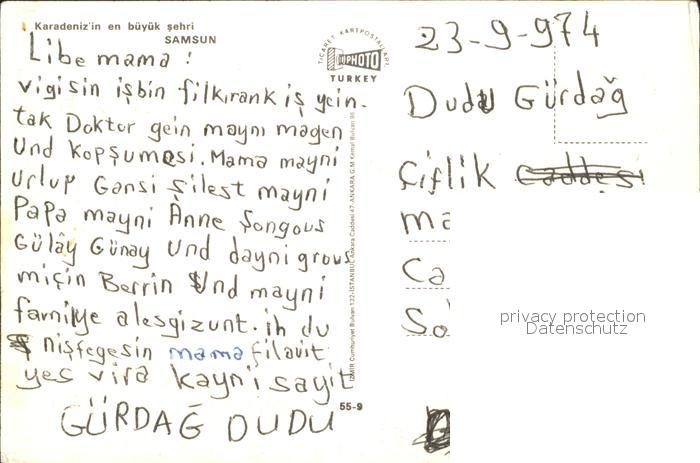 Karadeniz'in en büyük şehri
SAMSUN
Libe mama !
vigisin işbin filkırank iş gein-
tak Doktor gein maynı magen
Und kopşumesi. Mama mayni
urlup Gansi Şilest mayni
Papa mayni Anne Şongous
Gülây Günay Und dayni grous
miçin Berrin Und mayni
familye alesgizunt. ih du
nişfegesin mama filavit
yes vira kayn'i sayit
GÜRDAĞ DUDU
TİCARET KARTPOSTALLARI
TURKEY
İZMİR Cumhuriyet Bulvarı 132-İSTANBUL Ankara Caddesi 47-ANKARA G.M Kemal Bulvarı 95
55-9
23-9-974
Dudu Gürdağ
Çiflik Caddesi
ma
Ca
So
privacy protection
Datenschutz